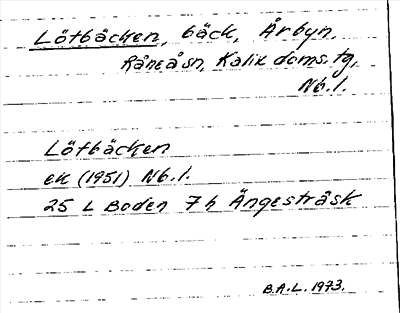 Lötbäcken, bäck, Årbyn,
Råneå sn, Kalix doms. tg,
Nb. l.
Lötbäcken
ek (1951) Nb. l.
25 L Boden 7h Ängesträsk
B.A.L. 1973.